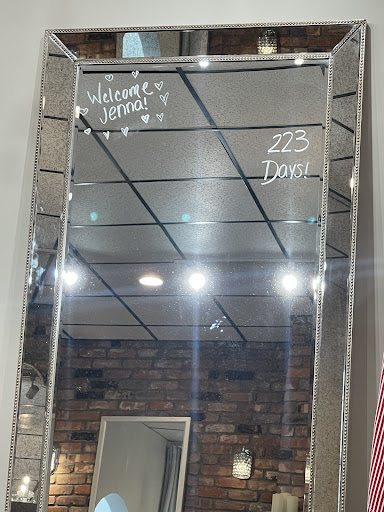 Welcome
Jenna!
223
Days!